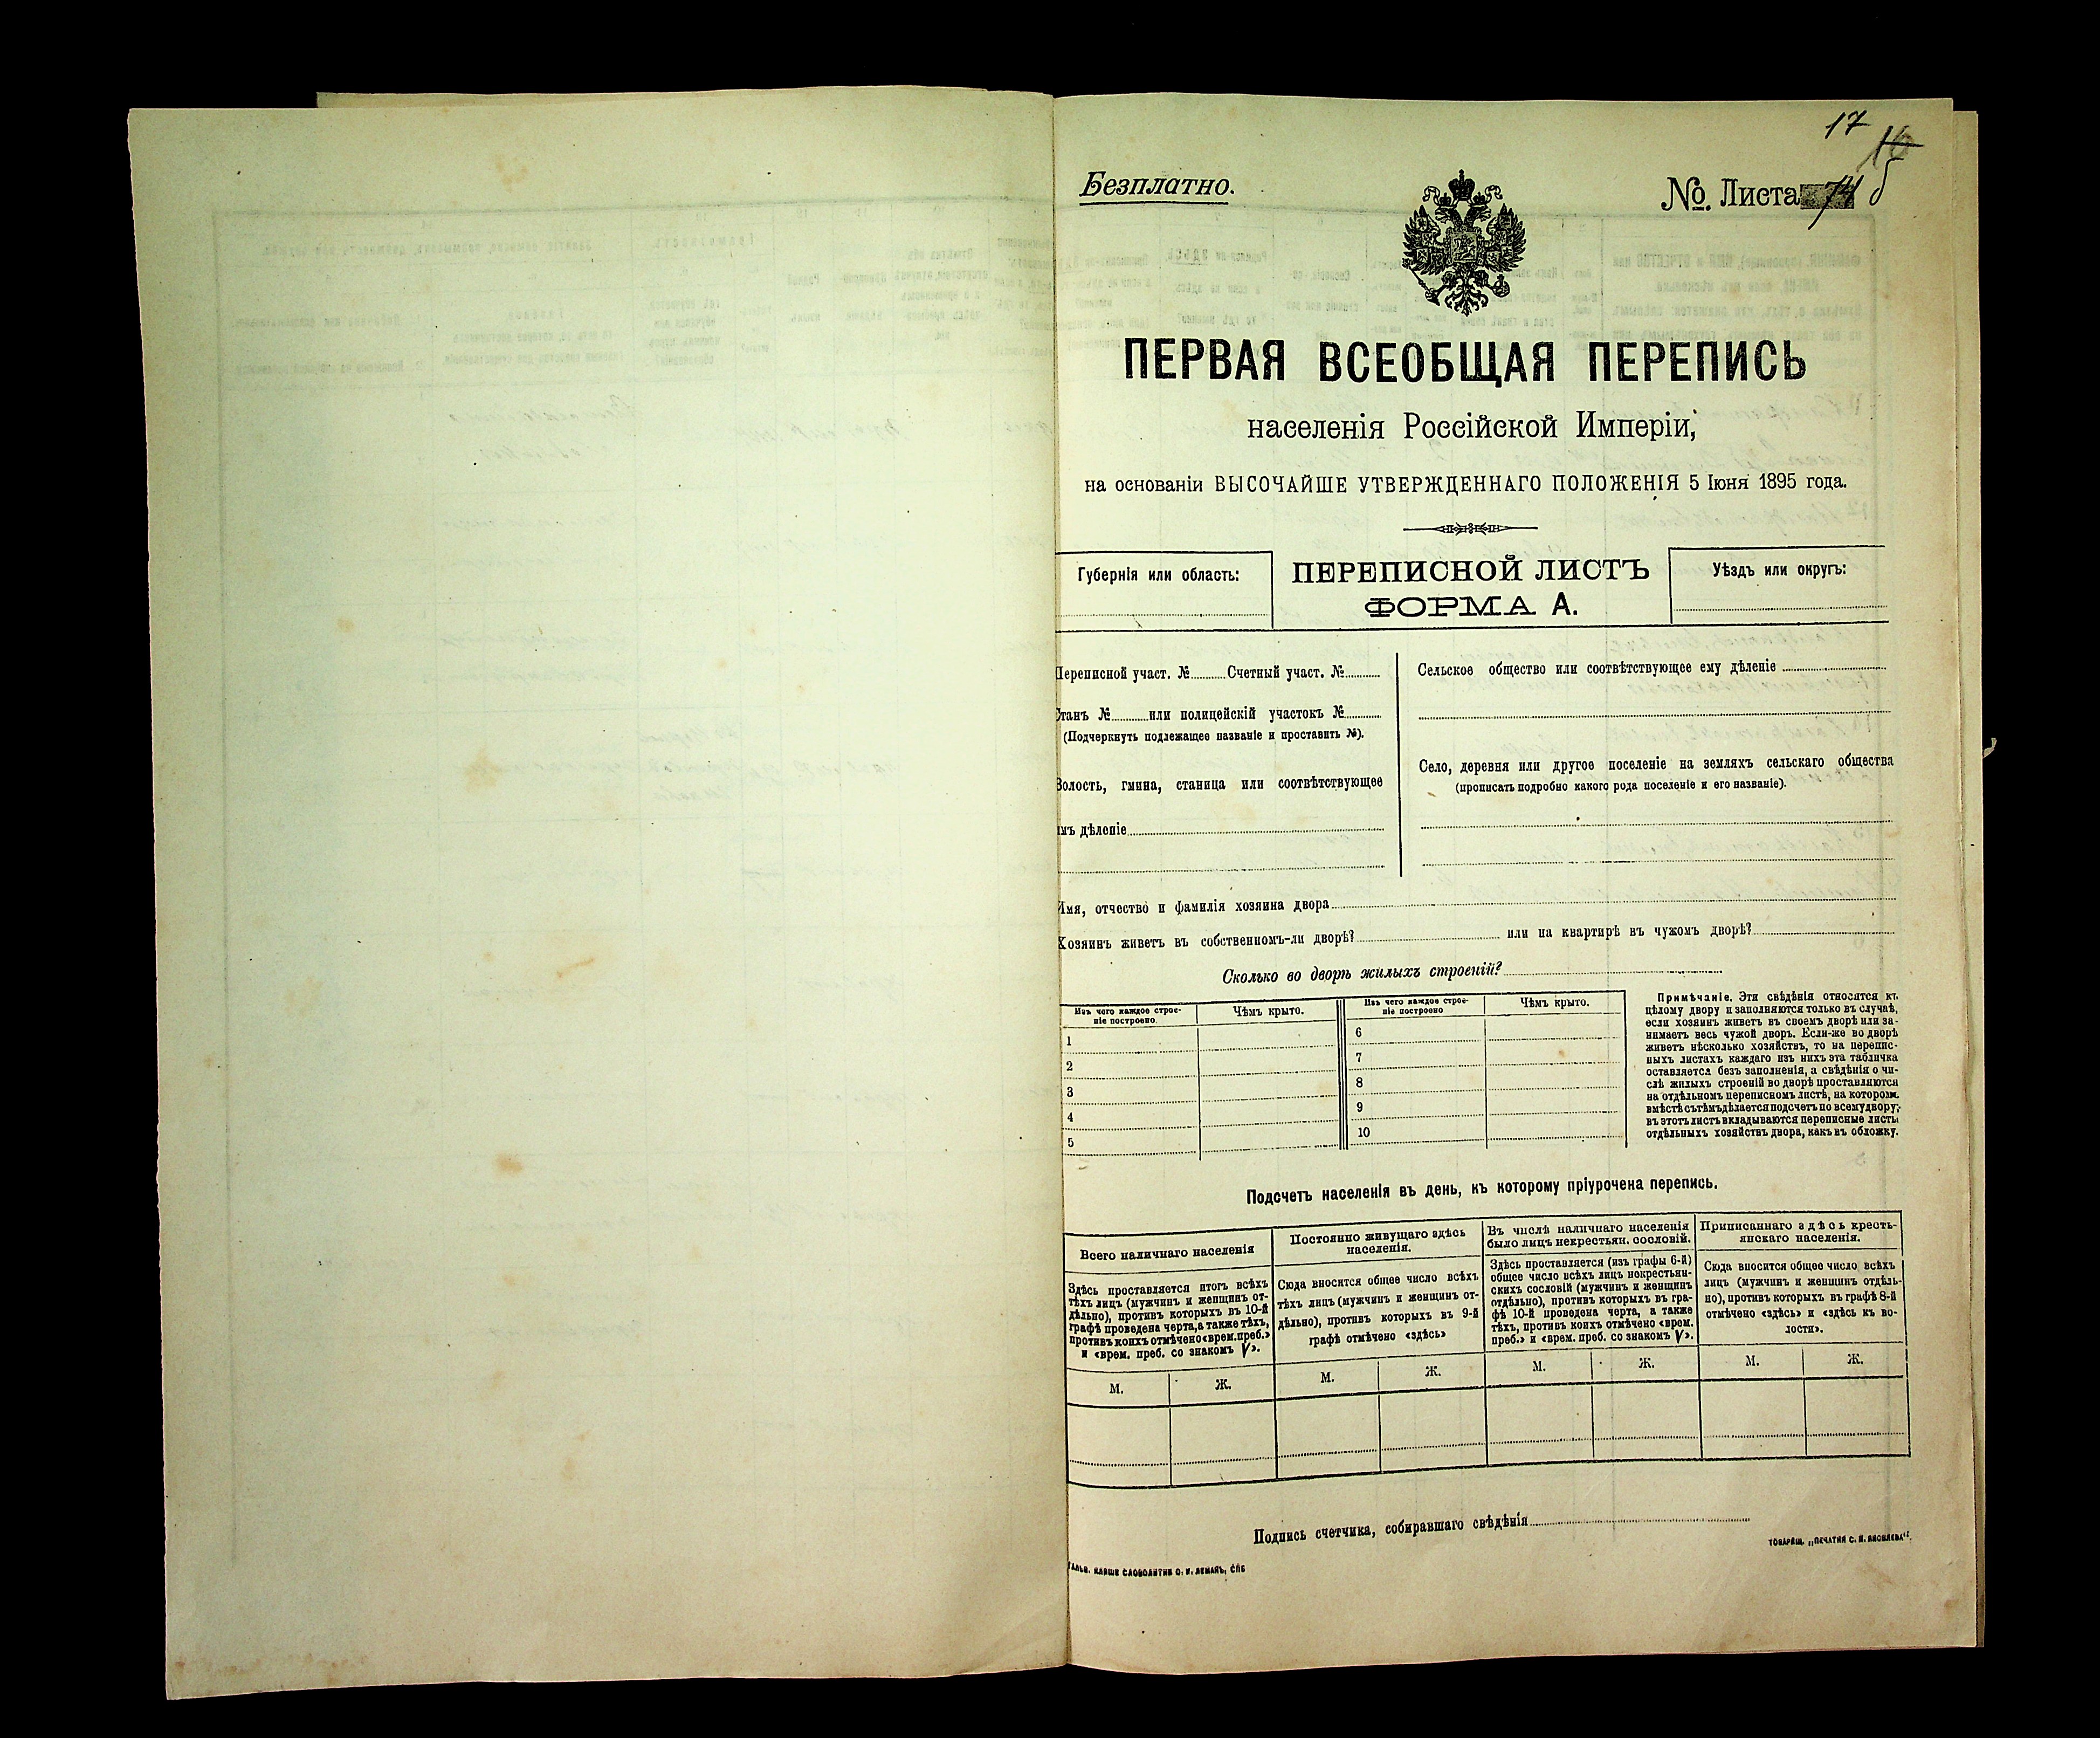 17
16
Безплатно.
№. Листа 74 б
ПЕРВАЯ ВСЕОБЩАЯ ПЕРЕПИСЬ
населенія Россійской Имперіи,
на основаніи ВЫСОЧАЙШЕ УТВЕРЖДЕННАГО ПОЛОЖЕНІЯ 5 Іюня 1895 года.
Губернія или область:
ПЕРЕПИСНОЙ ЛИСТЪ
ФОРМА А.
Уѣздъ или округъ:
Переписной участ. № Счетный участ. №
Станъ № или полицейскій участокъ №
(Подчеркнуть подлежащее названіе и проставить №).
Волость, гмина, станица или соотвѣтствующее
имъ дѣленіе
Сельское общество или соотвѣтствующее ему дѣленіе
Село, деревня или другое поселеніе на земляхъ сельскаго общества
(прописать подробно какого рода поселеніе и его названіе).
Имя, отчество и фамилія хозяина двора
Хозяинъ живетъ въ собственномъ-ли дворѣ? или на квартирѣ въ чужомъ дворѣ?
Сколько во дворѣ жилыхъ строеній?
Изъ чего каждое строе-
ніе построено.
Чѣмъ крыто.
1
2
3
4
5
Изъ чего каждое строе-
ніе построено
Чѣмъ крыто.
6
7
8
9
10
Примѣчаніе. Эти свѣдѣнія относятся къ
цѣлому двору и заполняются только въ случаѣ,
если хозяинъ живетъ въ своемъ дворѣ или за-
нимаетъ весь чужой дворъ. Если-же во дворѣ
живетъ нѣсколько хозяйствъ, то на перепис-
ныхъ листахъ каждаго изъ нихъ эта табличка
оставляется безъ заполненія, а свѣдѣнія о чи-
слѣ жилыхъ строеній во дворѣ проставляются
на отдѣльномъ переписномъ листѣ, на которомъ
вмѣстѣ съ тѣмъ дѣлается подсчетъ по всему двору;
въ этотъ листъ вкладываются переписные листы
отдѣльныхъ хозяйствъ двора, какъ въ обложку.
Подсчетъ населенія въ день, къ которому пріурочена перепись.
Всего наличнаго населенія
Здѣсь проставляется итогъ всѣхъ
тѣхъ лицъ (мужчинъ и женщинъ от-
дѣльно), противъ которыхъ въ 10-й
графѣ проведена черта, а также тѣхъ,
противъ коихъ отмѣчено «врем. преб.»
и «врем. преб. со знакомъ V».
М. Ж.
Постоянно живущаго здѣсь
населенія.
Сюда вносится общее число всѣхъ
тѣхъ лицъ (мужчинъ и женщинъ от-
дѣльно), противъ которыхъ въ 9-й
графѣ отмѣчено «здѣсь»
М. Ж.
Въ числѣ наличнаго населенія
было лицъ некрестьян. сословій.
Здѣсь проставляется (изъ графы 6-й)
общее число всѣхъ лицъ некрестьян-
скихъ сословій (мужчинъ и женщинъ
отдѣльно), противъ которыхъ въ гра-
фѣ 10-й проведена черта, а также
тѣхъ, противъ коихъ отмѣчено «врем.
преб.» и «врем. преб. со знакомъ V».
М. Ж.
Приписаннаго здѣсь кресть-
янскаго населенія.
Сюда вносится общее число всѣхъ
лицъ (мужчинъ и женщинъ отдѣль-
но), противъ которыхъ въ графѣ 8-й
отмѣчено «здѣсь» и «здѣсь къ во-
лости».
М. Ж.
Подпись счетчика, собиравшаго свѣдѣнія
ТОВАРИЩ. „ПЕЧАТНЯ С. П. ЯКОВЛЕВА".
СЛОВОЛИТНИ О. И. ЛЕМАНЪ, СПБ